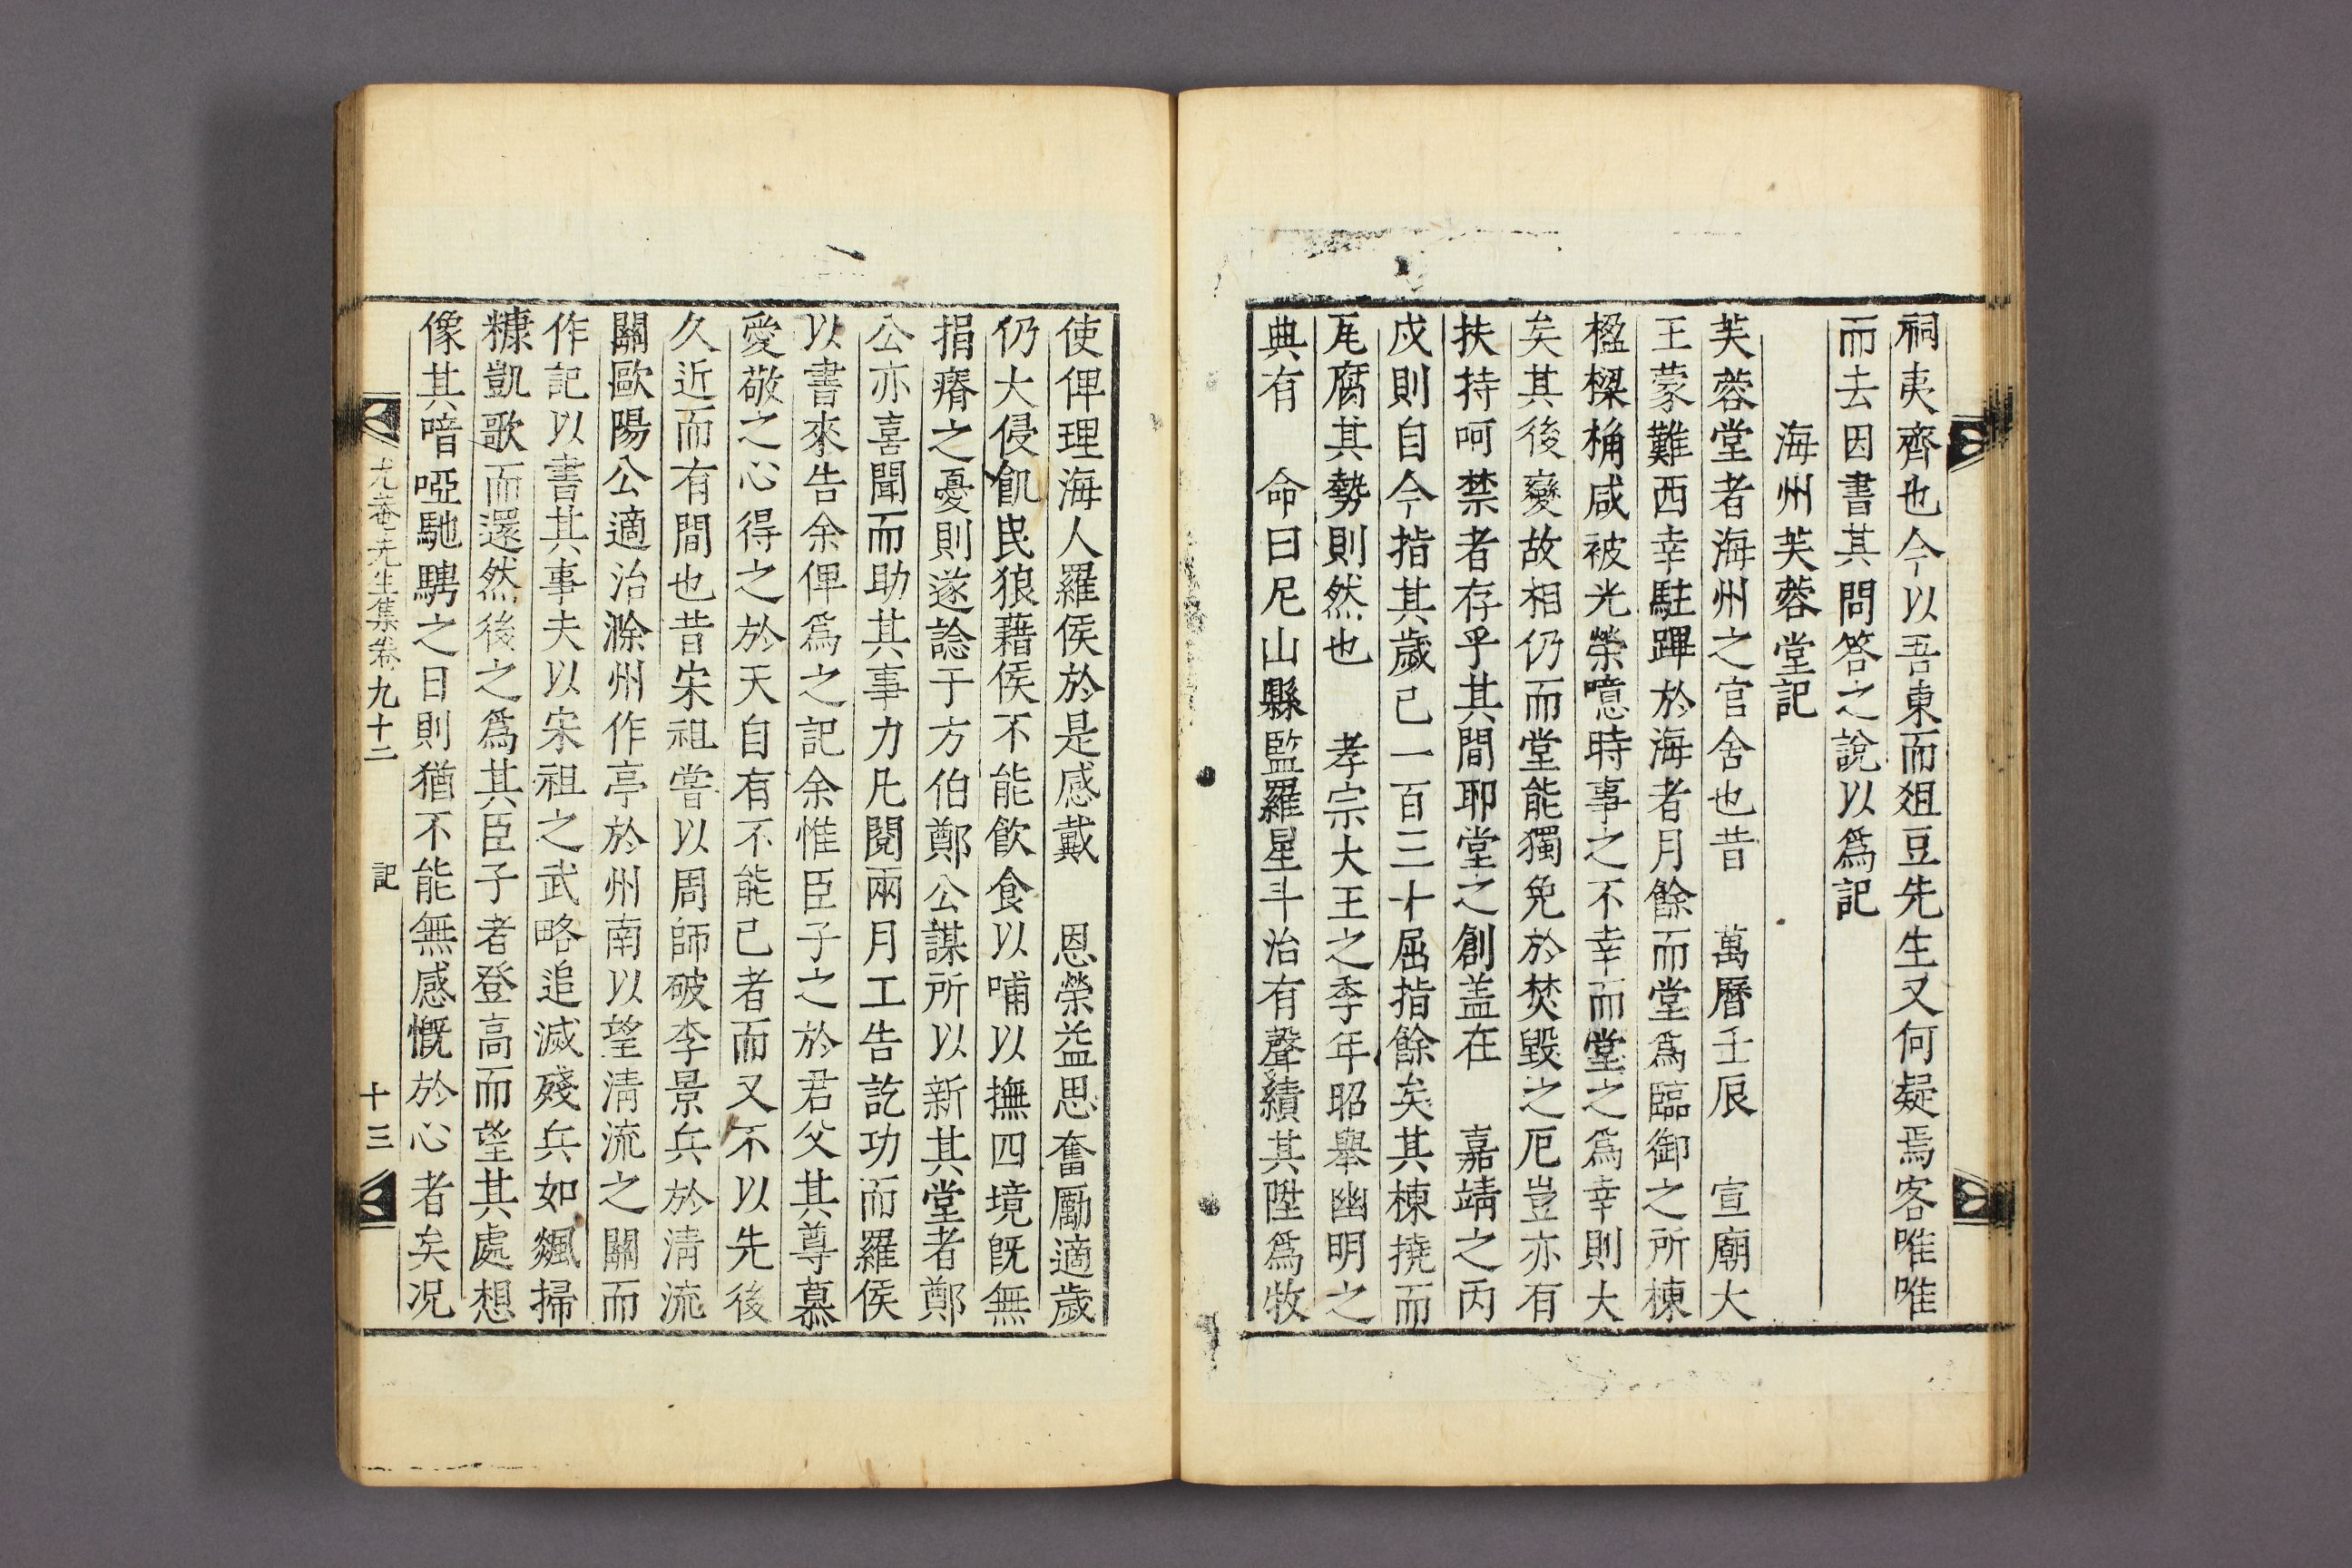 祠夷齊也今以吾東而俎豆先生又何疑焉客唯唯
而去因書其問答之說以爲記
海州芙蓉堂記
芙蓉堂者海州之官舍也昔　萬曆壬辰　宣廟大
王蒙難西幸駐蹕於海者月餘而堂爲臨御之所棟
楹樑桷咸被光榮噫時事之不幸而堂之爲幸則大
矣其後變故相仍而堂能獨免於焚毀之厄豈亦有
扶持呵禁者存乎其間耶堂之創盖在　嘉靖之丙
戍則自今指其歲已一百三十屈指餘矣其棟撓而
瓦腐其勢則然也　孝宗大王之季年昭舉幽明之
典有　命曰尼山縣監羅星斗治有聲績其陞爲牧
使俾理海人羅侯於是感戴　恩榮益思奮勵適歲
仍大侵飢民狼藉侯不能飲食以哺以撫四境旣無
捐瘠之憂則遂諗于方伯鄭公謀所以新其堂者鄭
公亦喜聞而助其事力凡閱兩月工告訖功而羅侯
以書來告余俾爲之記余惟臣子之於君父其尊慕
愛敬之心得之於天自有不能已者而又不以先後
久近而有間也昔宋祖嘗以周師破李景兵於淸流
關歐陽公適治滁州作亭於州南以望淸流之關而
作記以書其事夫以宋祖之武略追滅殘兵如飆掃
糠凱歌而還然後之爲其臣子者登高而望其處想
像其喑啞馳騁之日則猶不能無感慨於心者矣况
尤菴先生集卷九十二　記　十三